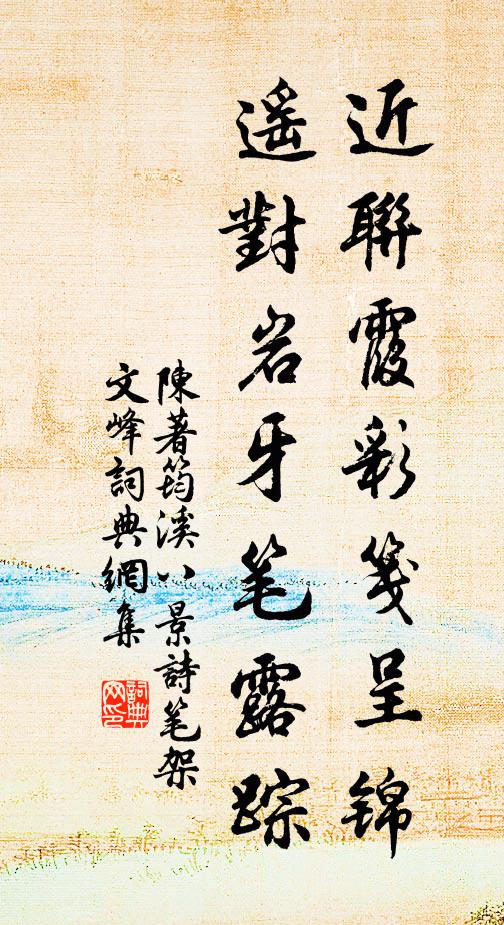 近聯霞彩箋呈錦
遥對岩牙笔露踪
陳著筠溪八景詩笔架
文峰詞典網集
詞典
网印